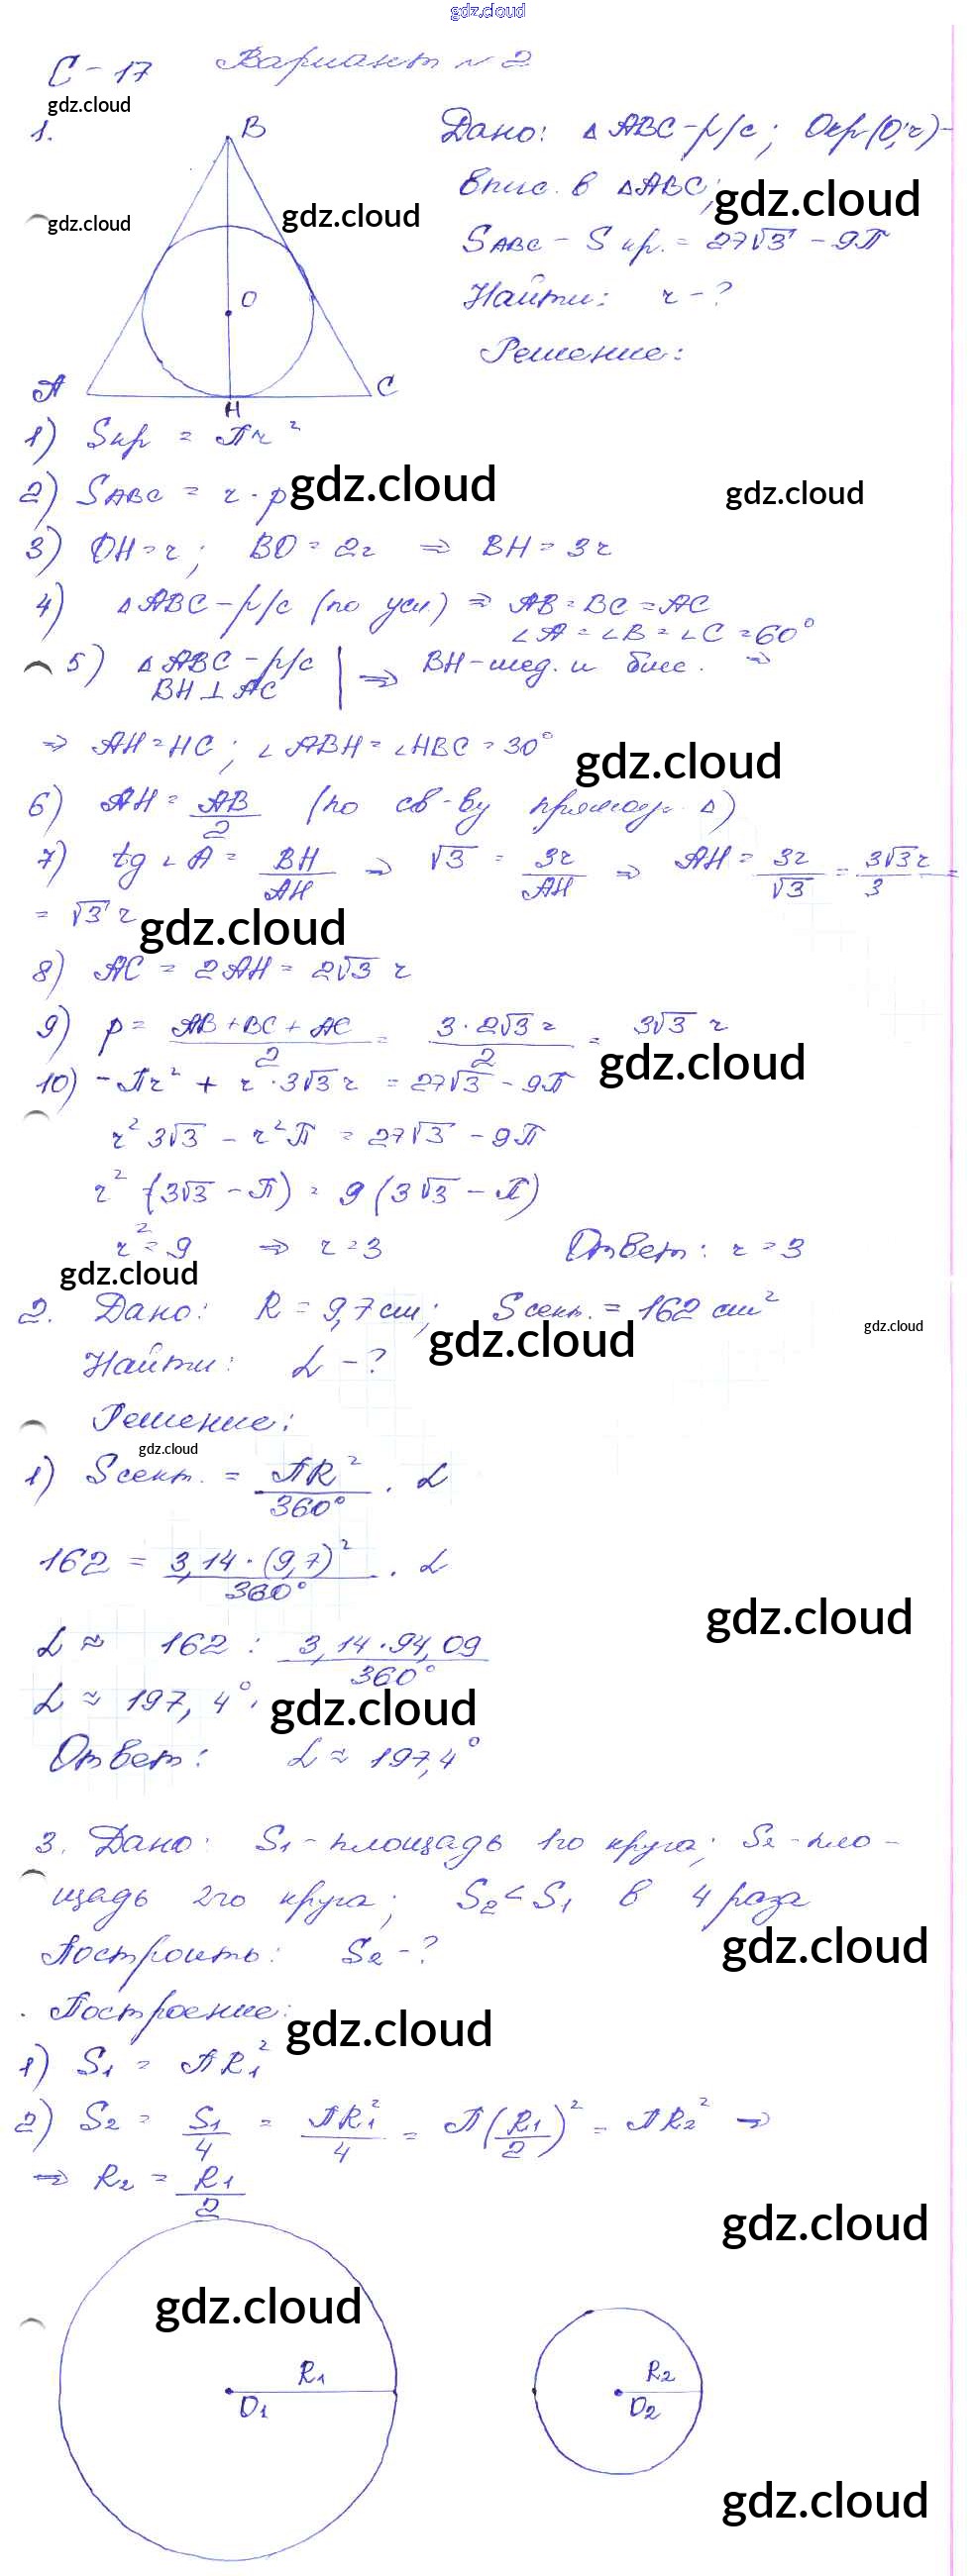 gdz.cloud
С-17 Вариант №2
gdz.cloud
1.
B
O
A
H
C
Дано: △ABC-р/с; Окр(O;r)-
впис. в △ABC;
gdz.cloud
gdz.cloud
gdz.cloud
S_ABC - S кр. = 27√3 - 9π
Найти: r-?
Решение:
1) Sкр = πr²
2) S_ABC = r·p
gdz.cloud
gdz.cloud
3) OH=r; BO=2r ⇒ BH=3r
4) △ABC-р/с (по усл) ⇒ AB=BC=AC
∠A=∠B=∠C=60°
5) △ABC-р/с | ⇒ BH-мед. и бисс. ⇒
BH⊥AC
⇒ AH=HC; ∠ABH=∠HBC=30°
gdz.cloud
6) AH = AB/2 (по св-ву прямоуг. △)
7) tg∠A = BH/AH ⇒ √3 = 3r/AH ⇒ AH = 3r/√3 = 3√3r/3 =
= √3 r
gdz.cloud
8) AC = 2AH = 2√3 r
9) p = (AB+BC+AC)/2 = (3·2√3r)/2 = 3√3 r
gdz.cloud
10) -πr² + r·3√3r = 27√3 - 9π
r² 3√3 - r²π = 27√3 - 9π
r² (3√3 - π) = 9(3√3 - π)
r² = 9 ⇒ r=3 Ответ: r=3
gdz.cloud
2. Дано: R=9,7см; Sсект.=162 см²
gdz.cloud
gdz.cloud
Найти: α-?
Решение:
gdz.cloud
1) Sсект. = πR²/360° · α
162 = 3,14·(9,7)²/360° · α
gdz.cloud
α ≈ 162 : 3,14·94,09/360°
α ≈ 197,4°.
gdz.cloud
Ответ: α ≈ 197,4°
3. Дано: S₁-площадь 1го круга; S₂-пло-
щадь 2го круга; S₂<S₁ в 4 раза
gdz.cloud
Построить: S₂-?
Построение:
gdz.cloud
1) S₁ = πR₁²
2) S₂ = S₁/4 = πR₁²/4 = π(R₁/2)² = πR₂² ⇒
⇒ R₂ = R₁/2
gdz.cloud
gdz.cloud
R₁
O₁
R₂
O₂
gdz.cloud